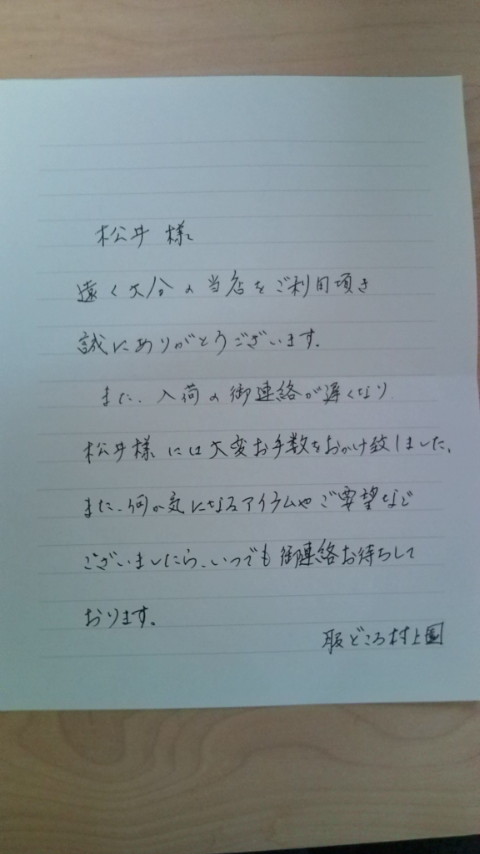 松井様
遠く大分の当店をご利用頂き
誠にありがとうございます。
また、入荷の御連絡が遅くなり
松井様には大変お手数をおかけ致しました。
また、何か気になるアイテムやご要望など
ございましたら、いつでも御連絡お待ちして
おります。
服どころ村上